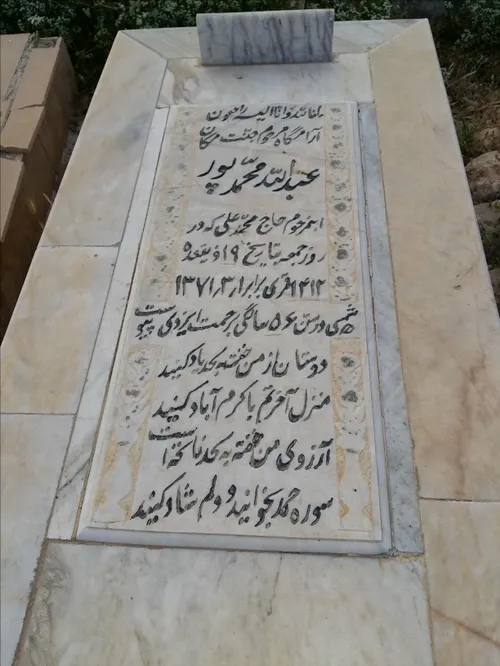 انا لله و انا الیه راجعون
آرامگاه مرحوم جنت مکان
عبدالله محمدپور
ابن مرحوم حاج محمد علی که در
روز جمعه بتاریخ ۱۹ ذیقعده
۱۴۱۲ قمری برابر ۱۳۷۱٫۳٫۱
ه ش در سن ۵۶ سالگی برحمت ایزدی پیوست
دوستان از من خفته به لحد یاد کنید
منزل آخرتم با کرم آباد کنید
آرزوی من خفته به لحد فاتحه است
سوره حمد بخوانید و دلم شاد کنید